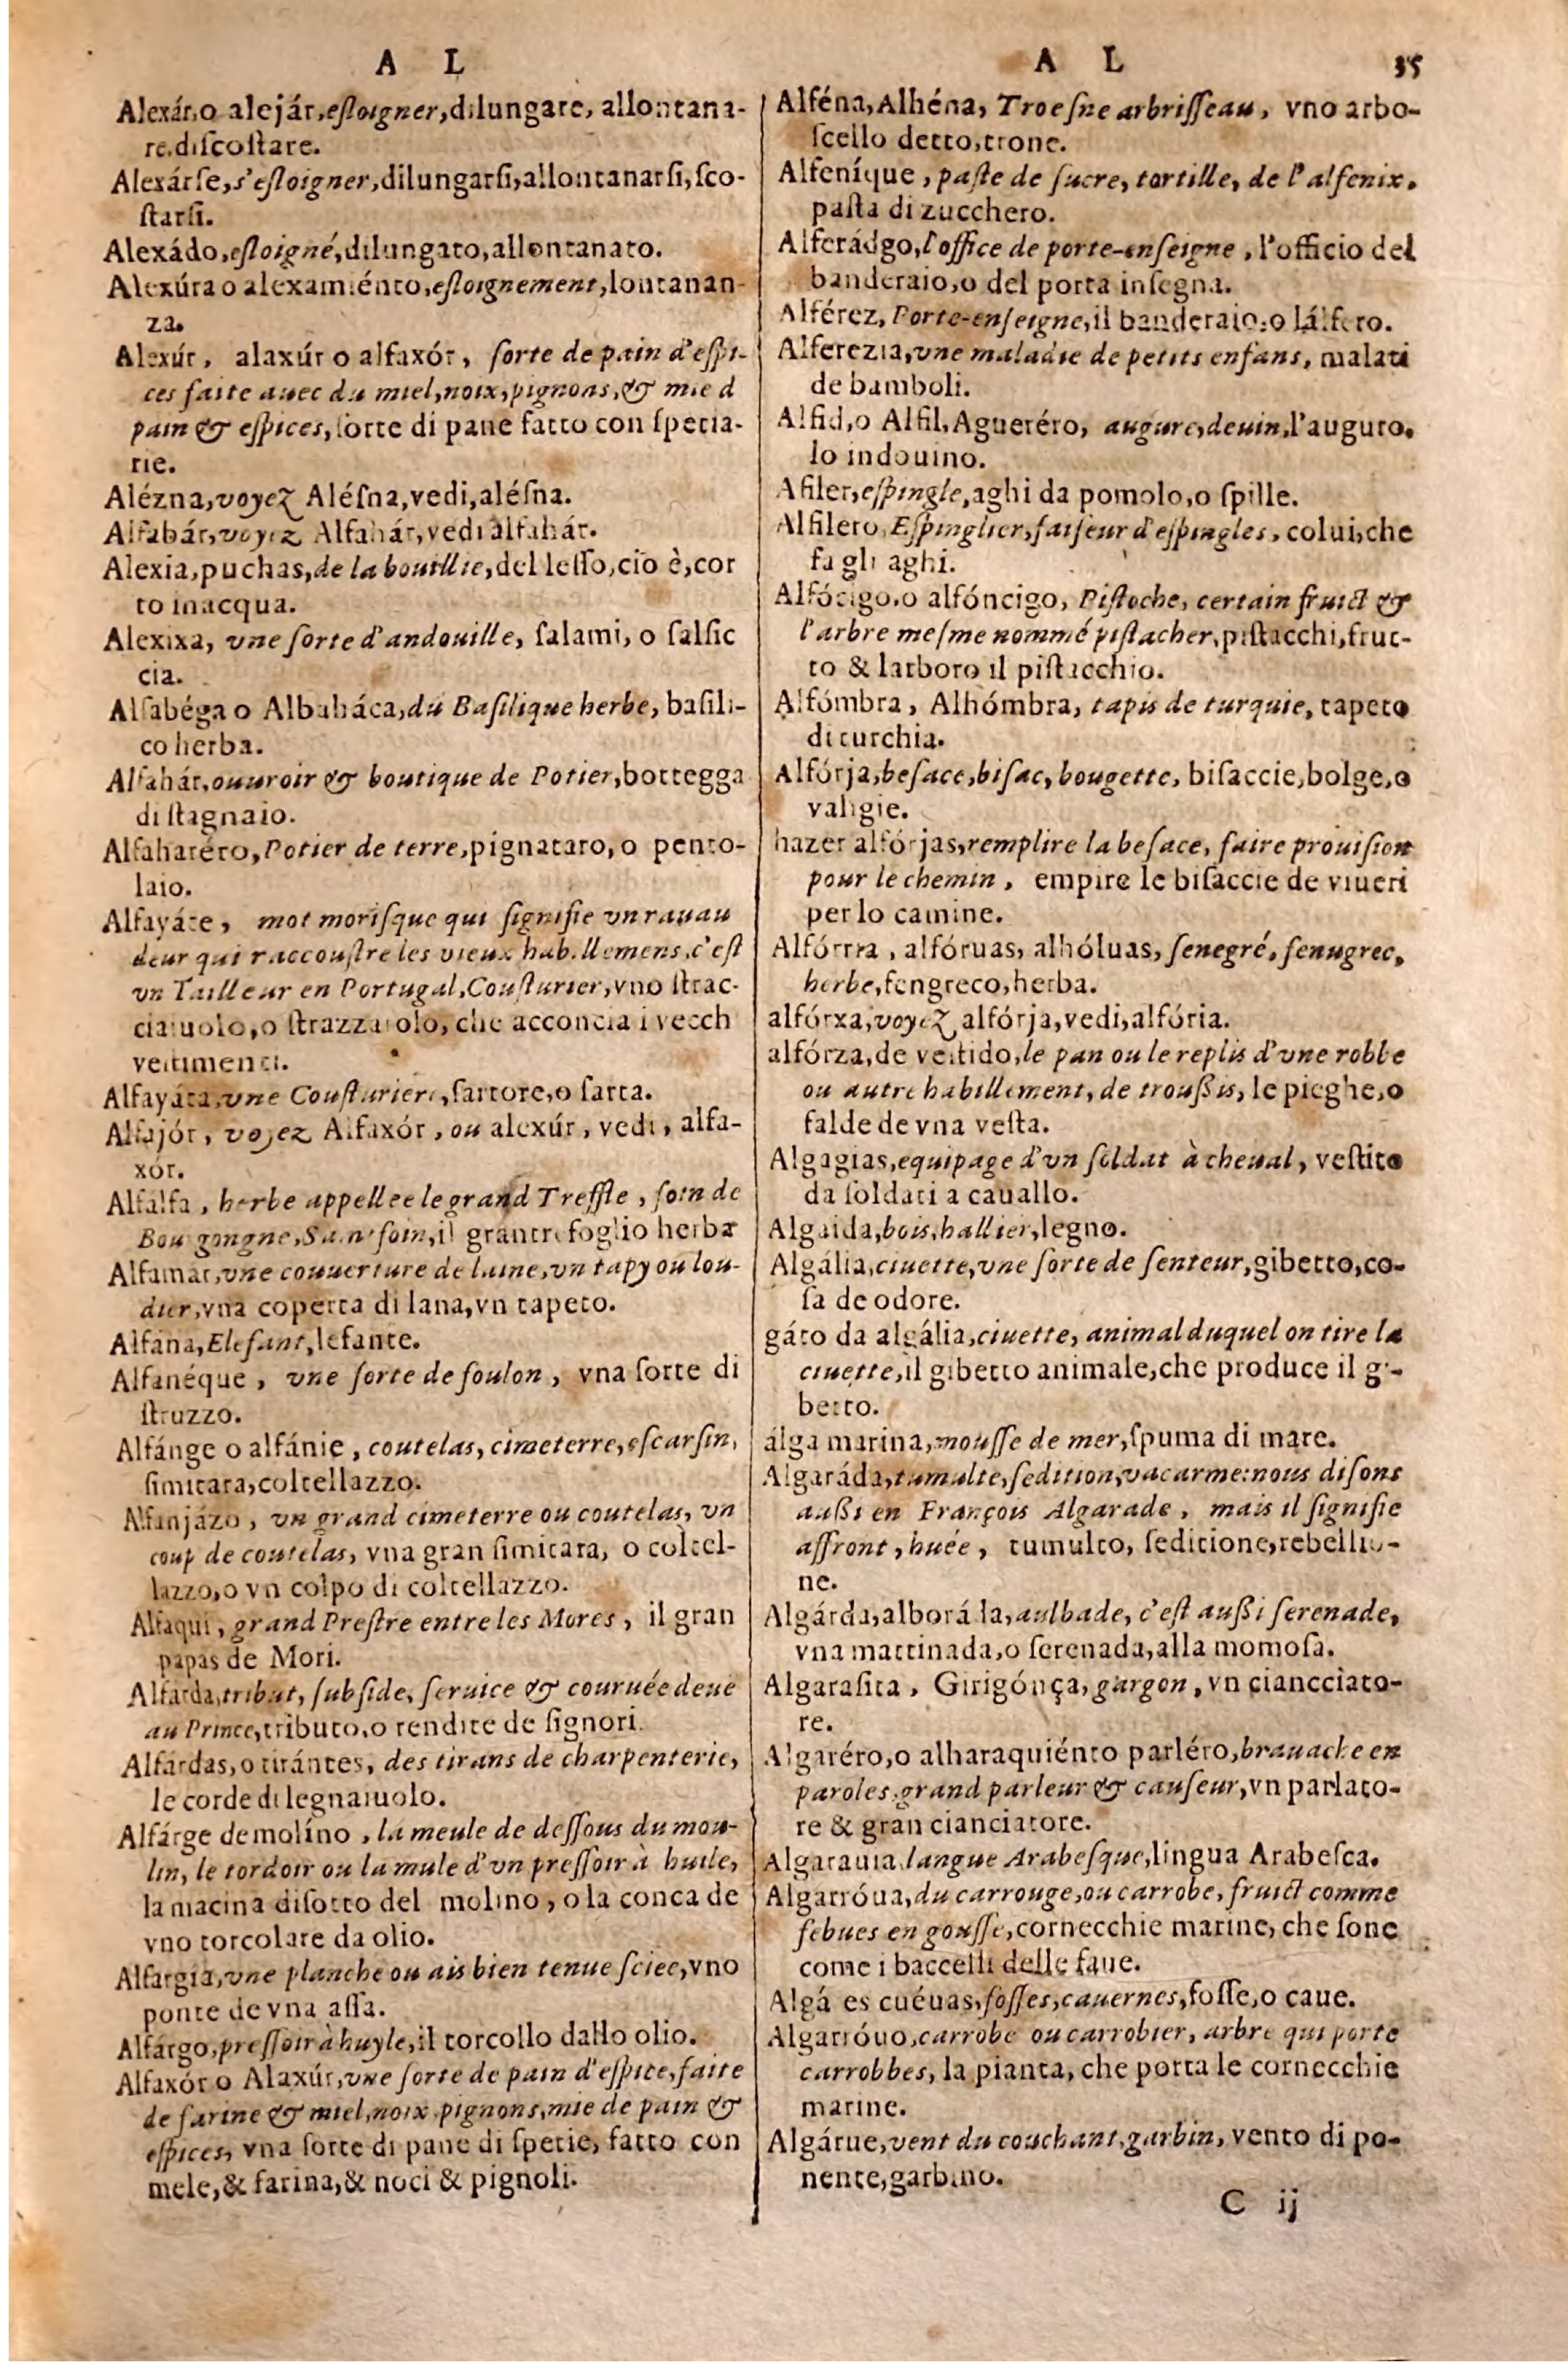 A L
Alexár,o alejár,esloigner,dilungare, allontana-
re,discostare.
Alexárse,s'esloigner,dilungarsi,allontanarsi,sco-
starsi.
Alexádo,esloigné,dilungato,allontanato.
Alexúra o alexamiénto,esloignement,lontanan-
za.
Alexúr, alaxúr o alfaxór, sorte de pain d'espi-
ces faite auec du miel,noix,pignons,& mie d
pain & espices,sorte di pane fatto con spetia-
rie.
Alézna,voyez Alésna,vedi,alésna.
Alfabár,voyez Alfahár,vedi alfahár.
Alexia,puchas,de la bouillie,del lesso,cio è,cor
to inacqua.
Alexixa, vne sorte d'andouille, salami, o salsic
cia.
Alfabéga o Albaháca,du Basilique herbe, basili-
co herba.
Alfahár,ouuroir & boutique de Potier,bottegga
di stagnaio.
Alfaharéro,Potier de terre,pignataro, o pento-
laio.
Alfayáte, mot morisque qui signifie vn rauau
deur qui raccoustre les vieux habillemens,c'est
vn Tailleur en Portugal,Cousturier,vno strac-
ciaiuolo,o strazzaiolo, che acconcia i vecch
vestimenti.
Alfayáta,vne Cousturiere,sartore,o sarta.
Alfajór, voyez Alfaxór, ou alexúr, vedi, alfa-
xór.
Alfalfa, herbe appellee le grand Treffle, foin de
Bourgongne,Sainfoin,il grantrefoglio herba
Alfamar,vne couuerture de laine,vn tapy ou lou-
dier,vna coperta di lana,vn tapeto.
Alfána,Elefant,lefante.
Alfanéque, vne sorte de foulon, vna sorte di
struzzo.
Alfánge o alfánie, coutelas, cimeterre,escarsin,
simitara,coltellazzo.
Alfanjázo, vn grand cimeterre ou coutelas, vn
coup de coutelas, vna gran simitara, o coltel-
lazzo,o vn colpo di coltellazzo.
Alfaqui, grand Prestre entre les Mores, il gran
papas de Mori.
Alfarda,tribut, subside, seruice & couruée deue
au Prince,tributo,o rendite de signori.
Alfárdas,o tirántes, des tirans de charpenterie,
le corde di legnaiuolo.
Alfárge de molíno, la meule de dessous du mou-
lin, le tordoir ou la mule d'vn pressoir à huile,
la macina disotto del molino, o la conca de
vno torcolare da olio.
Alfargia,vne planche ou ais bien tenue sciee,vno
ponte de vna assa.
Alfárgo,pressoir à huyle,il torcollo dallo olio.
Alfaxór o Alaxúr,vne sorte de pain d'espice,faite
de farine & miel,noix,pignons,mie de pain &
espices, vna sorte di pane di spetie, fatto con
mele,& farina,& noci & pignoli.
A L 35
Alféna,Alhéna, Troesne arbrisseau, vno arbo-
scello detto,trone.
Alfeníque, paste de sucre, tortille, de l'alfenix.
pasta di zucchero.
Alferádgo,l'office de porte-enseigne, l'officio del
banderaio,o del porta insegna.
Alférez, Porte-enseigne,il banderaio:o lálfero.
Alferezia,vne maladie de petits enfans, malati
de bamboli.
Alfid,o Alfil,Agueréro, augure,deuin,l'auguro.
lo indouino.
Afiler,espingle,aghi da pomolo,o spille.
Alfilero, Espinglier,faiseur d'espingles, colui,che
fa gli aghi.
Alfócigo,o alfóncigo, Pistoche, certain fruict &
l'arbre mesme nommé pistacher,pistacchi,frut-
to & larboro il pistacchio.
Alfómbra, Alhómbra, tapis de turquie, tapeto
di turchia.
Alfórja,besace,bisac, bougette, bisaccie,bolge,o
valigie.
hazer alfórjas,remplire la besace, faire prouision
pour le chemin, empire le bisaccie de viueri
per lo camine.
Alfórrra, alfóruas, alhóluas, senegré, fenugrec,
herbe,fengreco,herba.
alfórxa,voyez alfórja,vedi,alfória.
alfórza,de vestido,le pan ou le replis d'vne robbe
ou autre habillement, de troussis, le pieghe,o
falde de vna vesta.
Algagias,equipage d'vn soldat à cheual, vestito
da soldati a cauallo.
Algaida,bois,hallier,legno.
Algália,ciuette,vne sorte de senteur,gibetto,co-
sa de odore.
gáto da algália,ciuette, animal duquel on tire la
ciuette,il gibetto animale,che produce il gi-
betto.
álga marina,mousse de mer,spuma di mare.
Algaráda,tumulte,sedition,vacarme:nous disons
aussi en François Algarade, mais il signifie
affront, huée, tumulto, seditione,rebellio-
ne.
Algárda,alborá la,aulbade, c'est aussi serenade,
vna mattinada,o serenada,alla momosa.
Algarasita, Girigónça,gargon, vn ciancciato-
re.
Algaréro,o alharaquiénto parléro,brauache en
paroles,grand parleur & causeur,vn parlato-
re & gran cianciatore.
Algarauia,langue Arabesque,lingua Arabesca.
Algarróua,du carrouge,ou carrobe, fruict comme
febues en gousse,cornecchie marine, che sone
come i baccelli delle faue.
Algá es cuéuas,fosses,cauernes,fosse,o caue.
Algarróuo,carrobe ou carrobier, arbre qui porte
carrobbes, la pianta, che porta le cornecchie
marine.
Algárue,vent du couchant,garbin, vento di po-
nente,garbino.
C ij